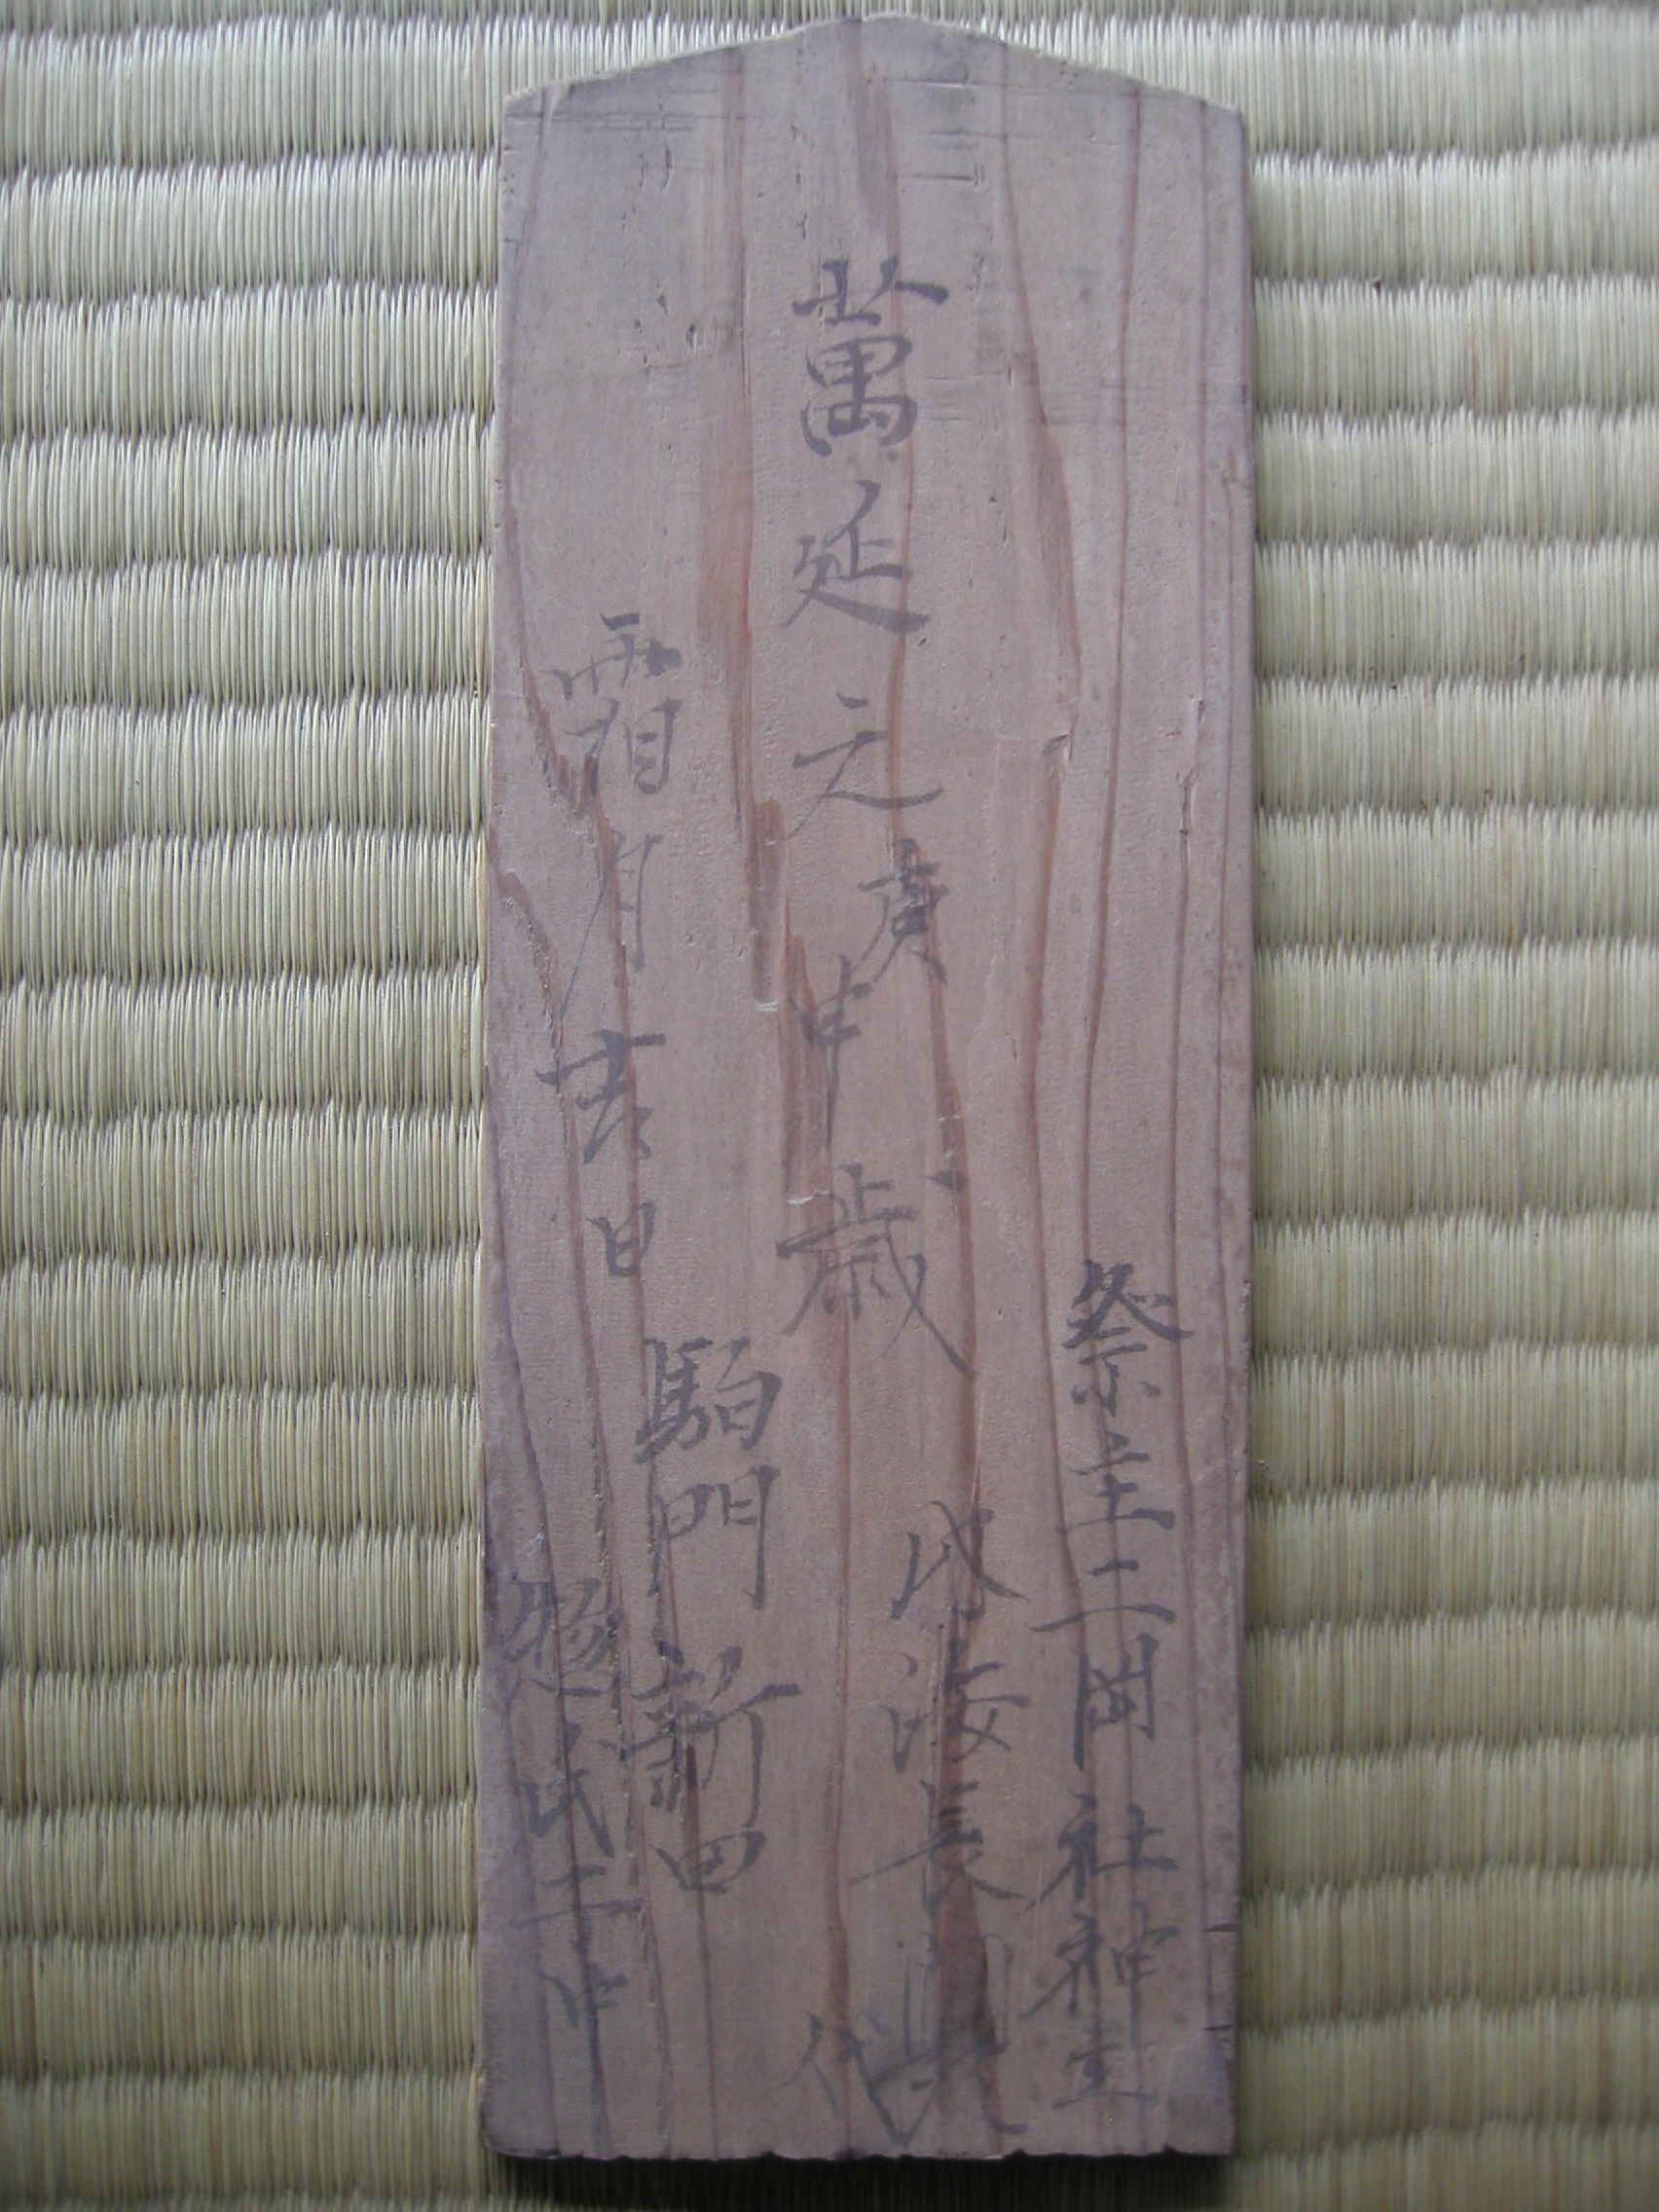 祭主二岡社神主
海長
代
萬延元庚申歳
駒門新田
霜月吉日
惣氏子中